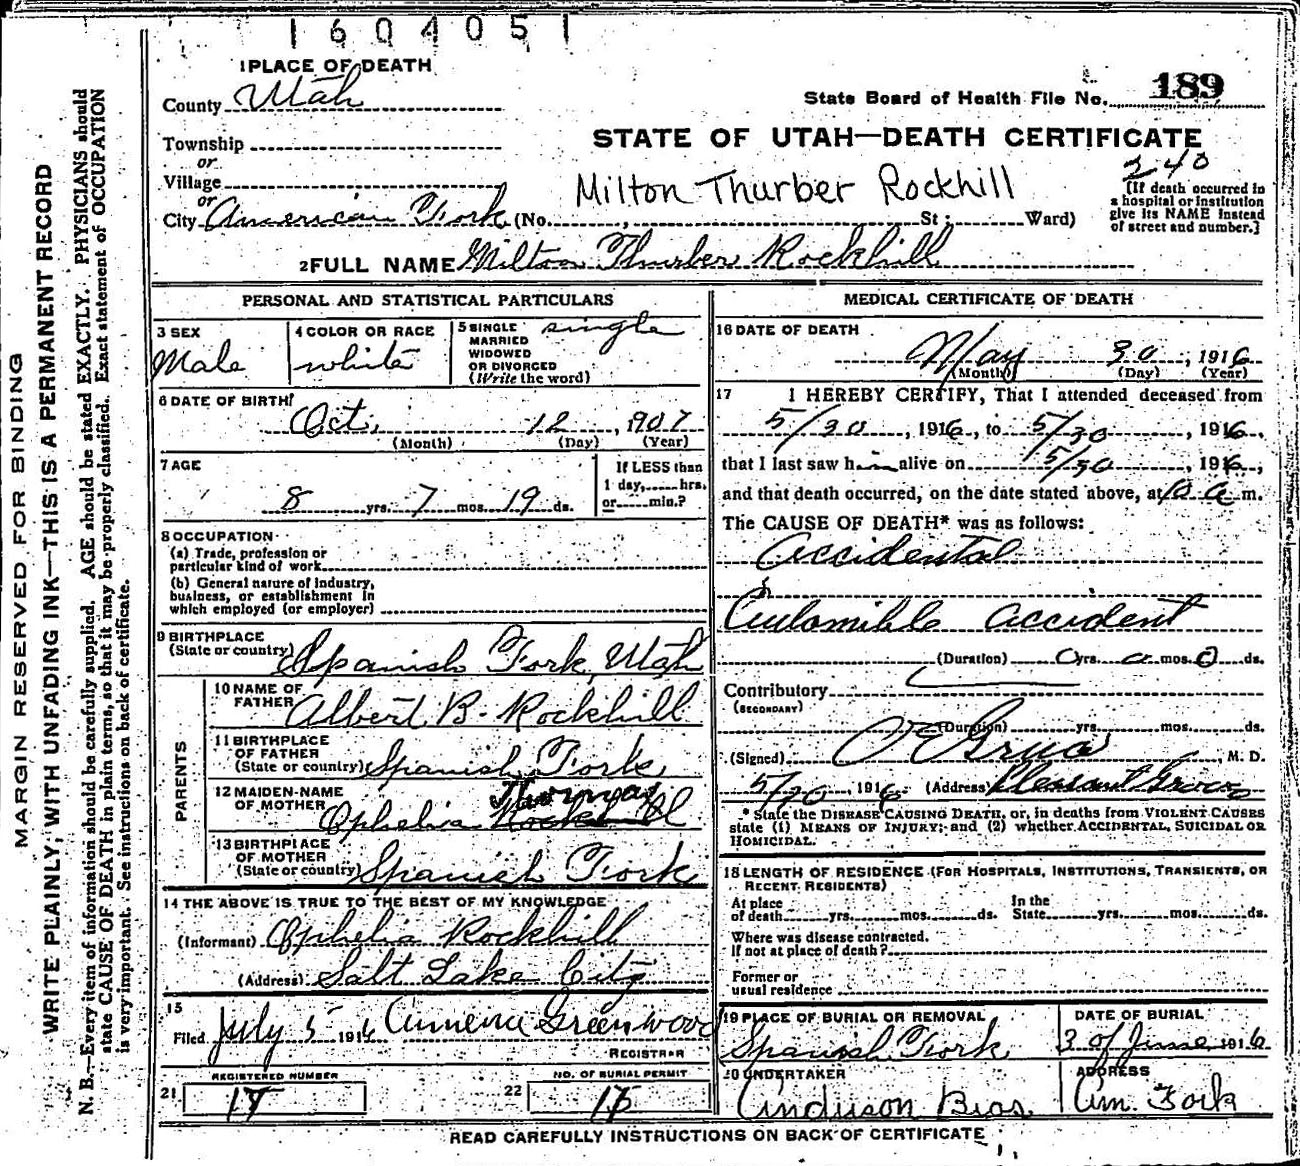 1604051
1 PLACE OF DEATH
County Utah
Township
or
Village
or
City American Fork (No. , St; Ward)
State Board of Health File No. 189
STATE OF UTAH—DEATH CERTIFICATE
240
Milton Thurber Rockhill
[If death occurred in
a hospital or institution
give its NAME instead
of street and number.]
2 FULL NAME Milton Thurber Rockhill
PERSONAL AND STATISTICAL PARTICULARS
3 SEX
Male
4 COLOR OR RACE
white
5 SINGLE
MARRIED
WIDOWED
OR DIVORCED
(Write the word)
single
6 DATE OF BIRTH
Oct. 12, 1907
(Month) (Day) (Year)
7 AGE
8 yrs. 7 mos. 19 ds.
If LESS than
1 day, hrs.
or min.?
8 OCCUPATION
(a) Trade, profession or
particular kind of work
(b) General nature of industry,
business, or establishment in
which employed (or employer)
9 BIRTHPLACE
(State or country) Spanish Fork, Utah
PARENTS
10 NAME OF
FATHER Albert B. Rockhill
11 BIRTHPLACE
OF FATHER
(State or country) Spanish Fork
12 MAIDEN-NAME
OF MOTHER
Thomas
Ophelia Rockhill
13 BIRTHPLACE
OF MOTHER
(State or country) Spanish Fork
14 THE ABOVE IS TRUE TO THE BEST OF MY KNOWLEDGE
(Informant) Ophelia Rockhill
(Address) Salt Lake City
15
Filed July 5 1916 Greenwood
REGISTRAR
21 REGISTERED NUMBER
22 NO. OF BURIAL PERMIT
MEDICAL CERTIFICATE OF DEATH
16 DATE OF DEATH
May 30, 1916
(Month) (Day) (Year)
17 I HEREBY CERTIFY, That I attended deceased from
5/30, 1916, to 5/30, 1916,
that I last saw him alive on 5/30, 1916,
and that death occurred, on the date stated above, at 10 a m.
The CAUSE OF DEATH* was as follows:
Accidental
Automibile accident
(Duration) 0 yrs. 0 mos. 0 ds.
Contributory
(SECONDARY)
(Duration) yrs. mos. ds.
(Signed) , M. D.
5/30, 1916 (Address) Pleasant Grove
* State the DISEASE CAUSING DEATH, or, in deaths from VIOLENT CAUSES
state (1) MEANS OF INJURY; and (2) whether ACCIDENTAL, SUICIDAL OR
HOMICIDAL.
18 LENGTH OF RESIDENCE (FOR HOSPITALS, INSTITUTIONS, TRANSIENTS, OR
RECENT RESIDENTS)
At place
of death yrs. mos. ds.
In the
State yrs. mos. ds.
Where was disease contracted.
If not at place of death?
Former or
usual residence
19 PLACE OF BURIAL OR REMOVAL
Spanish Fork
DATE OF BURIAL
3 of June 1916
20 UNDERTAKER
Anderson Bros.
ADDRESS
Am. Fork
READ CAREFULLY INSTRUCTIONS ON BACK OF CERTIFICATE
MARGIN RESERVED FOR BINDING
WRITE PLAINLY, WITH UNFADING INK—THIS IS A PERMANENT RECORD
N. B.—Every item of information should be carefully supplied. AGE should be stated EXACTLY. PHYSICIANS should
state CAUSE OF DEATH in plain terms, so that it may be properly classified. Exact statement of OCCUPATION
is very important. See instructions on back of certificate.